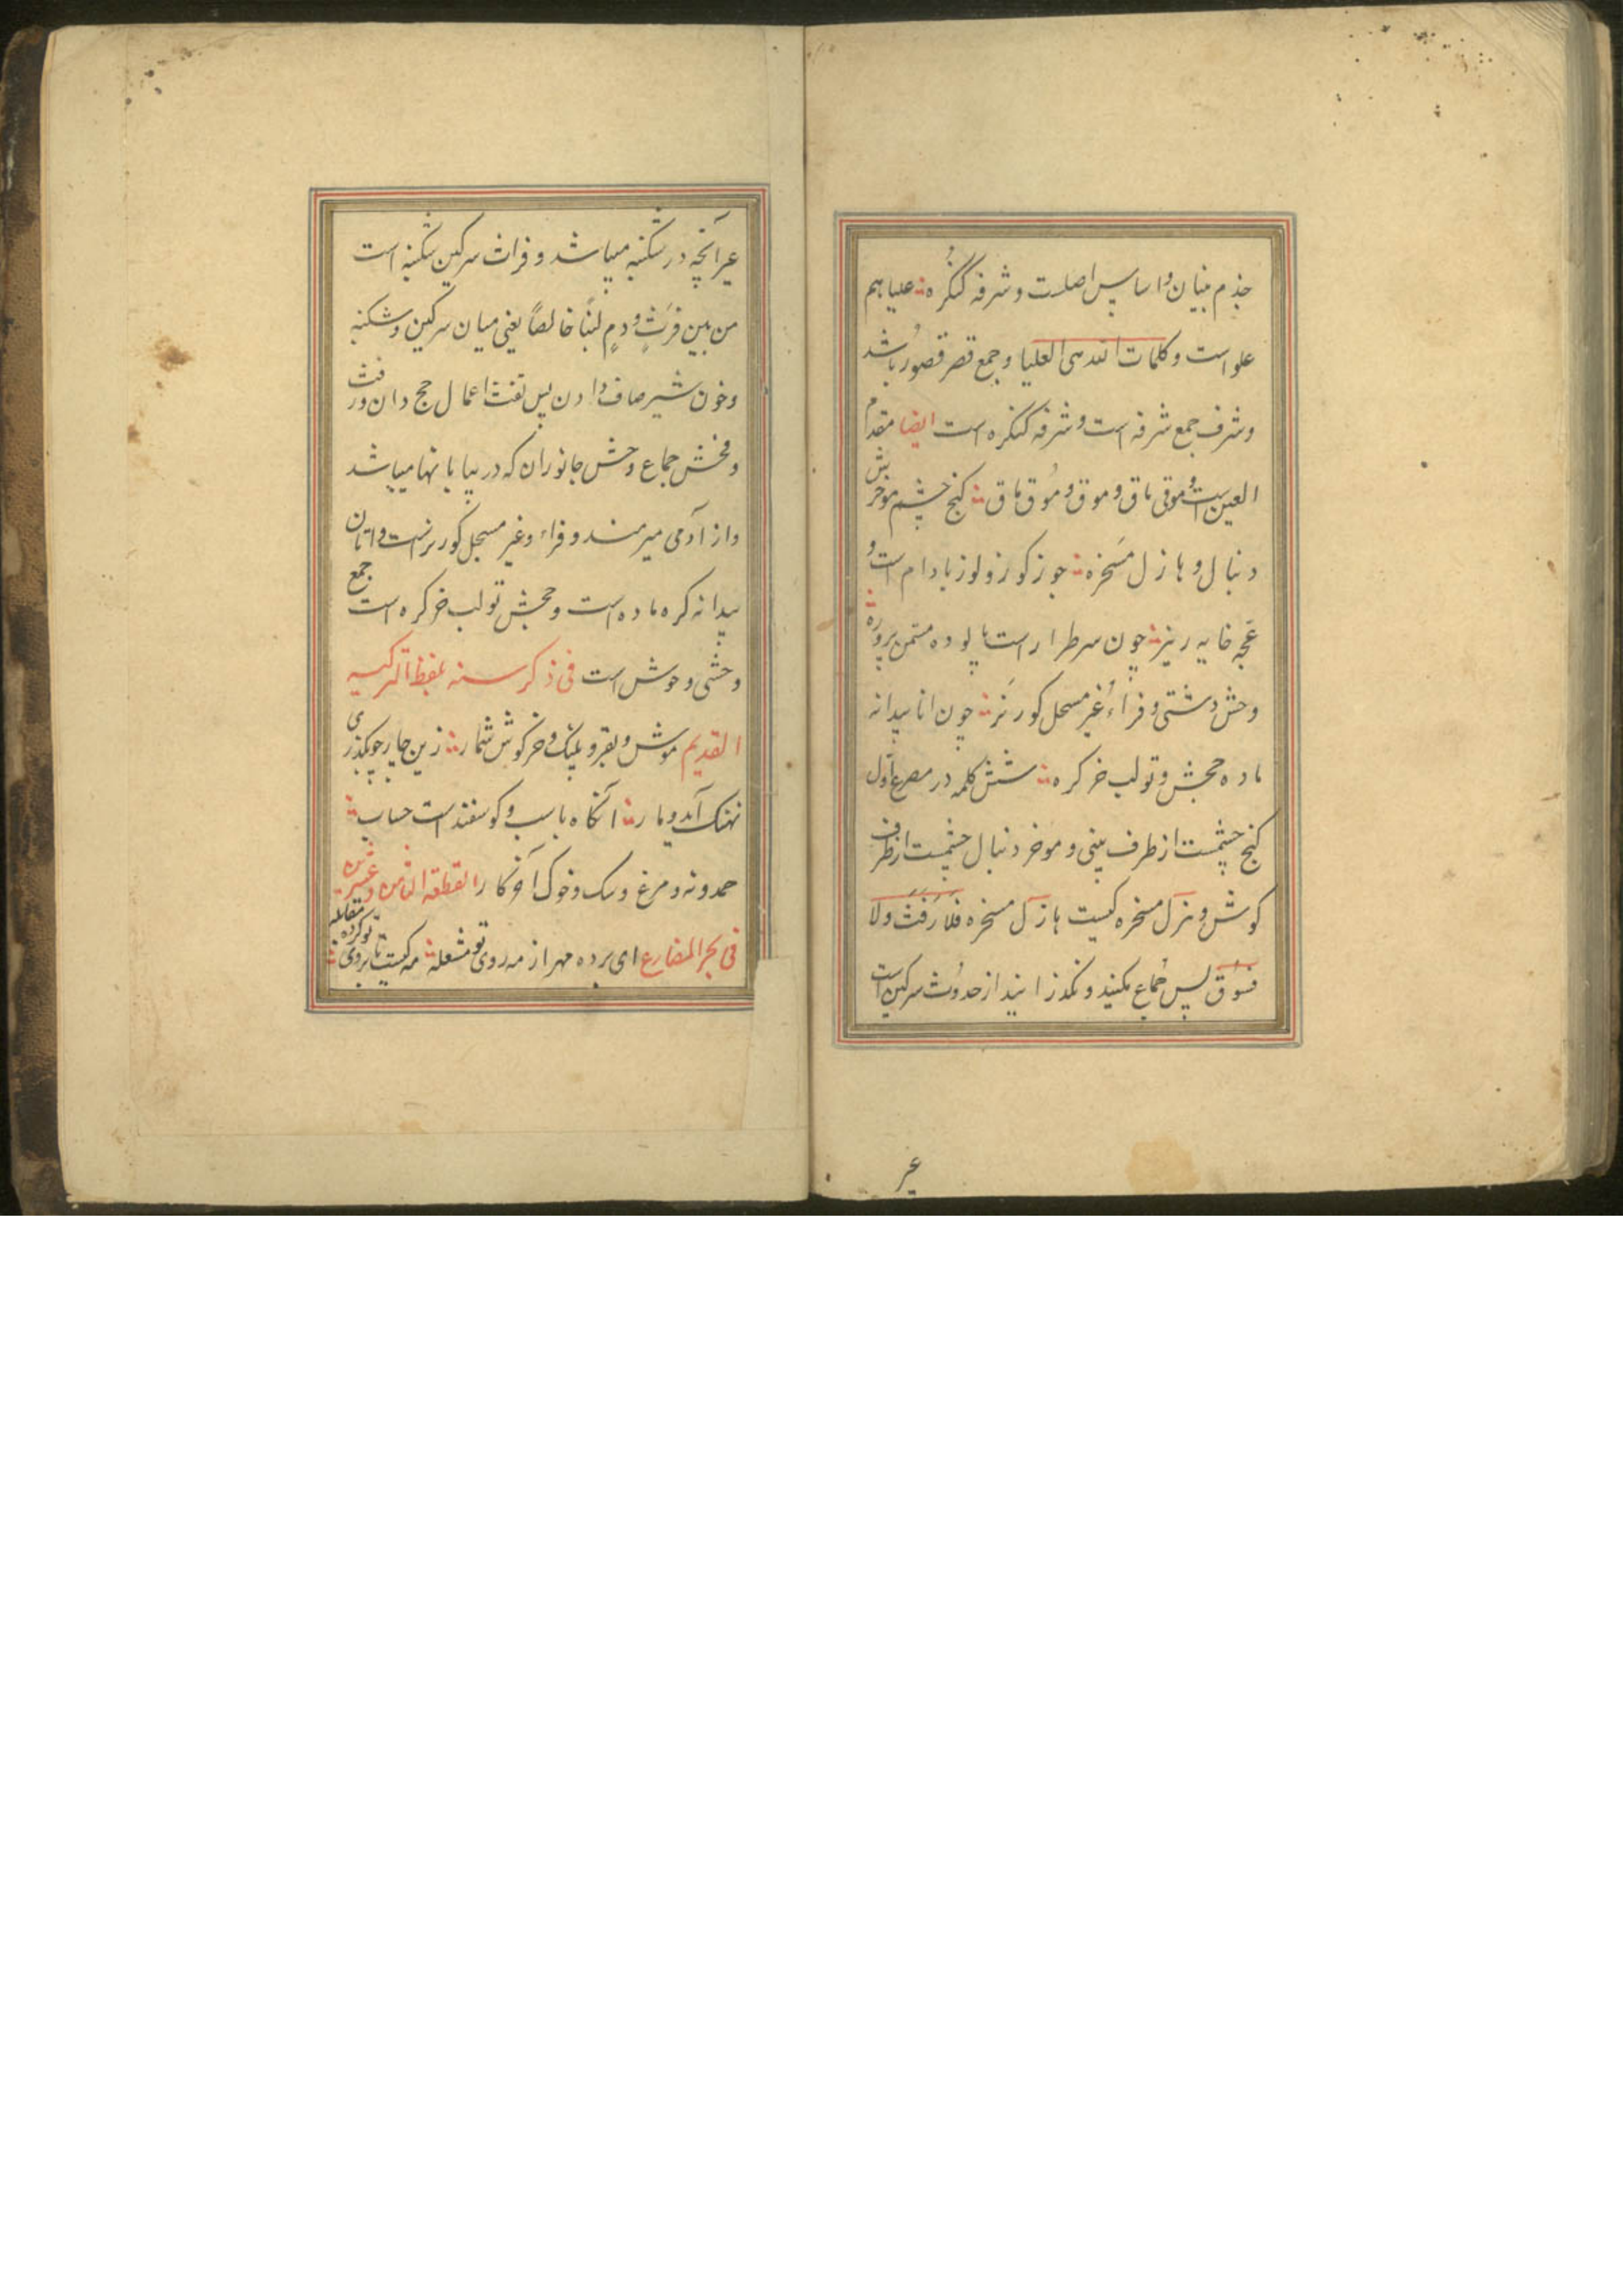 جذم بنیان و اساس اصلست و شرفه کنگره علیا هم
علو است و کلمات الله هی العلیا و جمع قصر قصور باشد
و شرف جمع شرفه است و شرفه کنکره است ایضا مقدم
العین است و موقی ماق و موق و مُوق ماق کنج چشم موخرش
دنبال و هازل مَسخره جوز کوز و لوز بادام است و
عجه خایه ریز چون سرطرا راست پالوده مستمن پرورده
وحش دشتی و فراءُ غیر مسحل کور نَر چون اتا بیدانه
ماده جحش و تولب خر کره شش کلمه در مصرع اول
کنج چشمست از طرف بینی و موخر دنبال چشمست از طرف
کوش و هزل مسخره کیست هازل مسخره فلا رَفث ولا
فسُوق پس جُماع مکنید و نکذرانید از حد وُث سرکین است
عیر
عیر آنچه در شکنبه میباشد و فراث سرکین شکنبه است
من بین فرَثٍ و دمٍ لبناً خالصاً یعنی میان سرکین و شکنبه
و خون شیر صاف دادن پس تفث اعمال حج دان و رفث
و فحش جماع وحش جانوران که در بیابانها میباشد
و از آدمی میرمند و فراء و غیر مسحل کور نر است و اتان
بیدانه کره ماده است و جحش تولب خر کره است جمع
وحشی وحوش است فی ذکر سنه بلفظ الترکیه
القدیم موش و بقر و پلنک و خرکوش شمار زین چار چو بکذری
نهنک آید و مار آنکاه باسب و کوسفند است حساب
حمدونه و مرغ و سک و خوک آخر کار القطعة الثامن و عشرین
فی بحر المضارع ای برده مهر از مه روی تو مشعله مه کیست تا بروی تو کرده مقابله